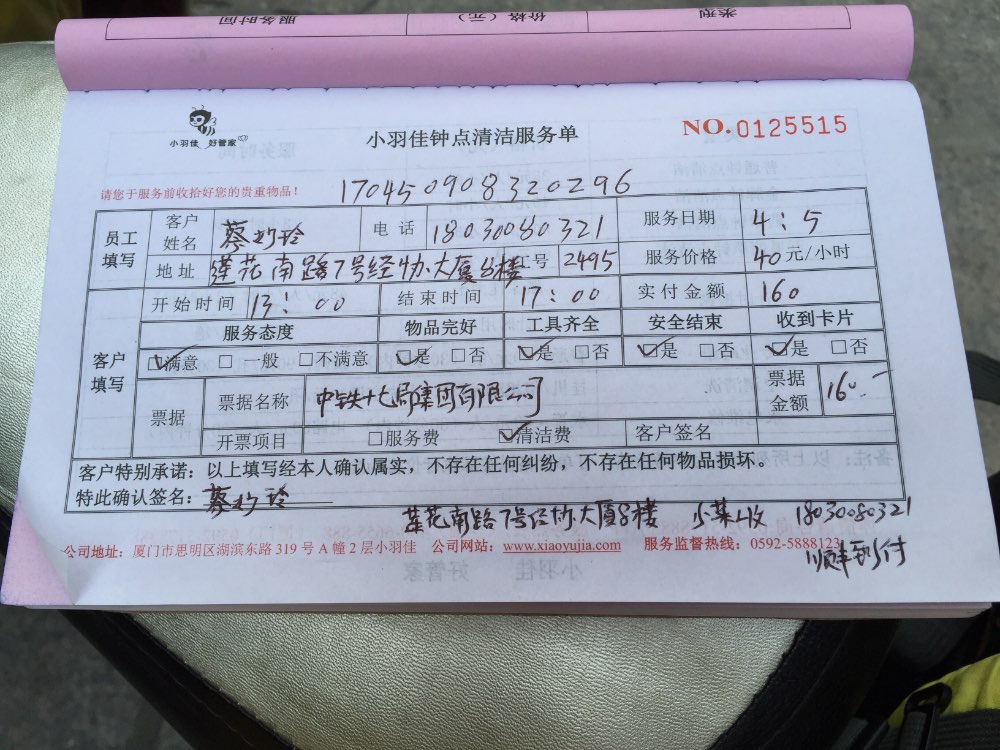 服务时间 价格（元） 类型
小羽佳 好管家
小羽佳钟点清洁服务单
NO.0125515
请您于服务前收拾好您的贵重物品！
17045090832​0296
员工填写 客户姓名 蔡妙玲 电话 18030080321 服务日期 4：5
地址 莲花南路7号经协大厦8楼 工号 2495 服务价格 40元/小时
开始时间 13：00 结束时间 17：00 实付金额 160
客户填写 服务态度 物品完好 工具齐全 安全结束 收到卡片
☑满意 □一般 □不满意 ☑是 □否 ☑是 □否 ☑是 □否 ☑是 □否
票据 票据名称 中铁十七局集团有限公司 票据金额 160.-
开票项目 □服务费 ☑清洁费 客户签名
客户特别承诺：以上填写经本人确认属实，不存在任何纠纷，不存在任何物品损坏。
特此确认签名：蔡妙玲
莲花南路7号经协大厦8楼 小蔡收 18030080321
公司地址：厦门市思明区湖滨东路 319 号 A 幢 2 层小羽佳 公司网站：www.xiaoyujia.com 服务监督热线：0592-5888123
顺丰到付